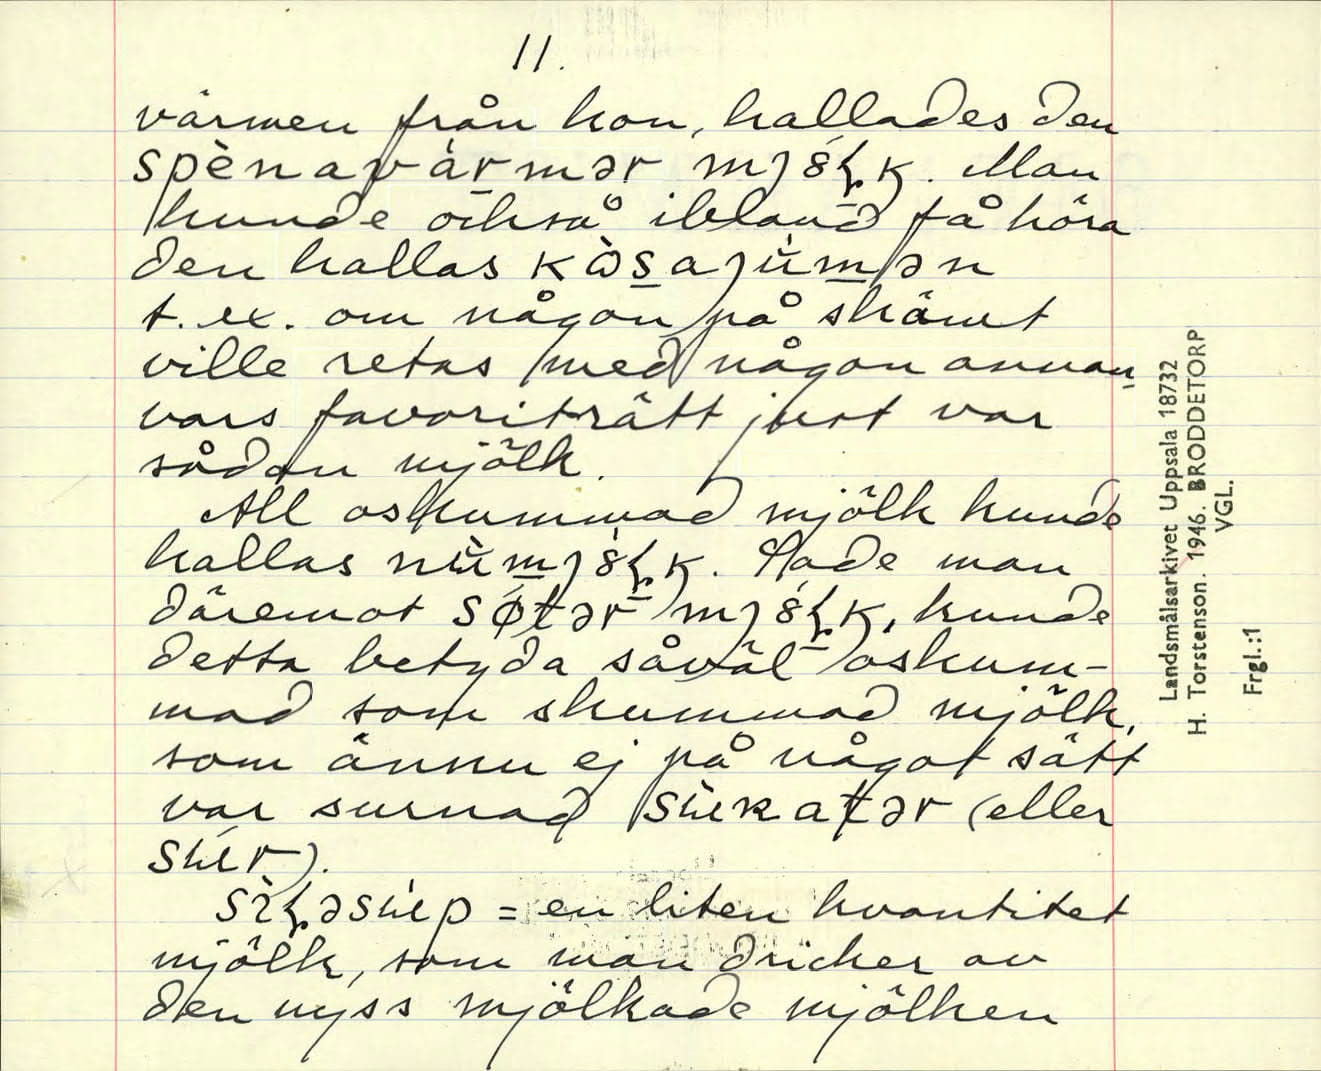 11.
värmen från kon, kallades den
spènavármər mjölk. Man
kunde också ibland få höra
den kallas
t. ex. om någon på skämt
ville retas med någon annan,
vars favoriträtt just var
sådan mjölk.
All oskummad mjölk kunde
kallas Sade man
däremot kunde
detta betyda såväl oskum-
mad som skummad mjölk,
som ännu ej på något sätt
var surnad (eller

= en liten kvantitet
mjölk, som man dricker av
den nyss mjölkade mjölken
Landsmålsarkivet Uppsala 18732
H. Torstenson. 1946. BRODDETORP
VGL.
Frgl.:1